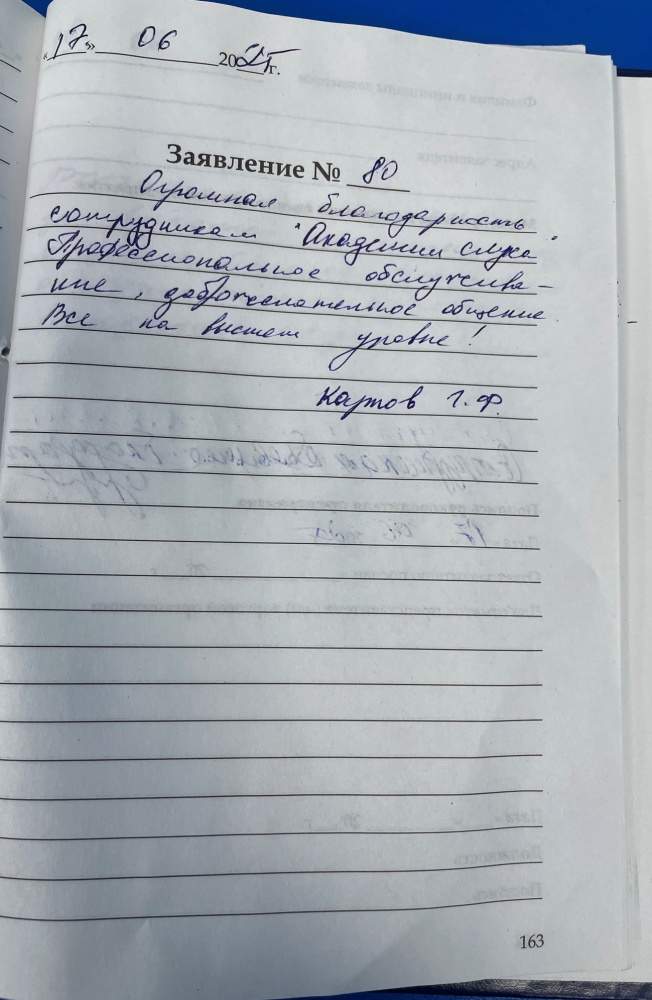 «17» 06 2025 г.
Заявление № 80
Огромная благодарность
сотрудникам "Академии слуха".
Профессиональное обслужива-
ние, доброжелательное общение.
Все на высшем уровне!
Карпов Г. Ф.
163